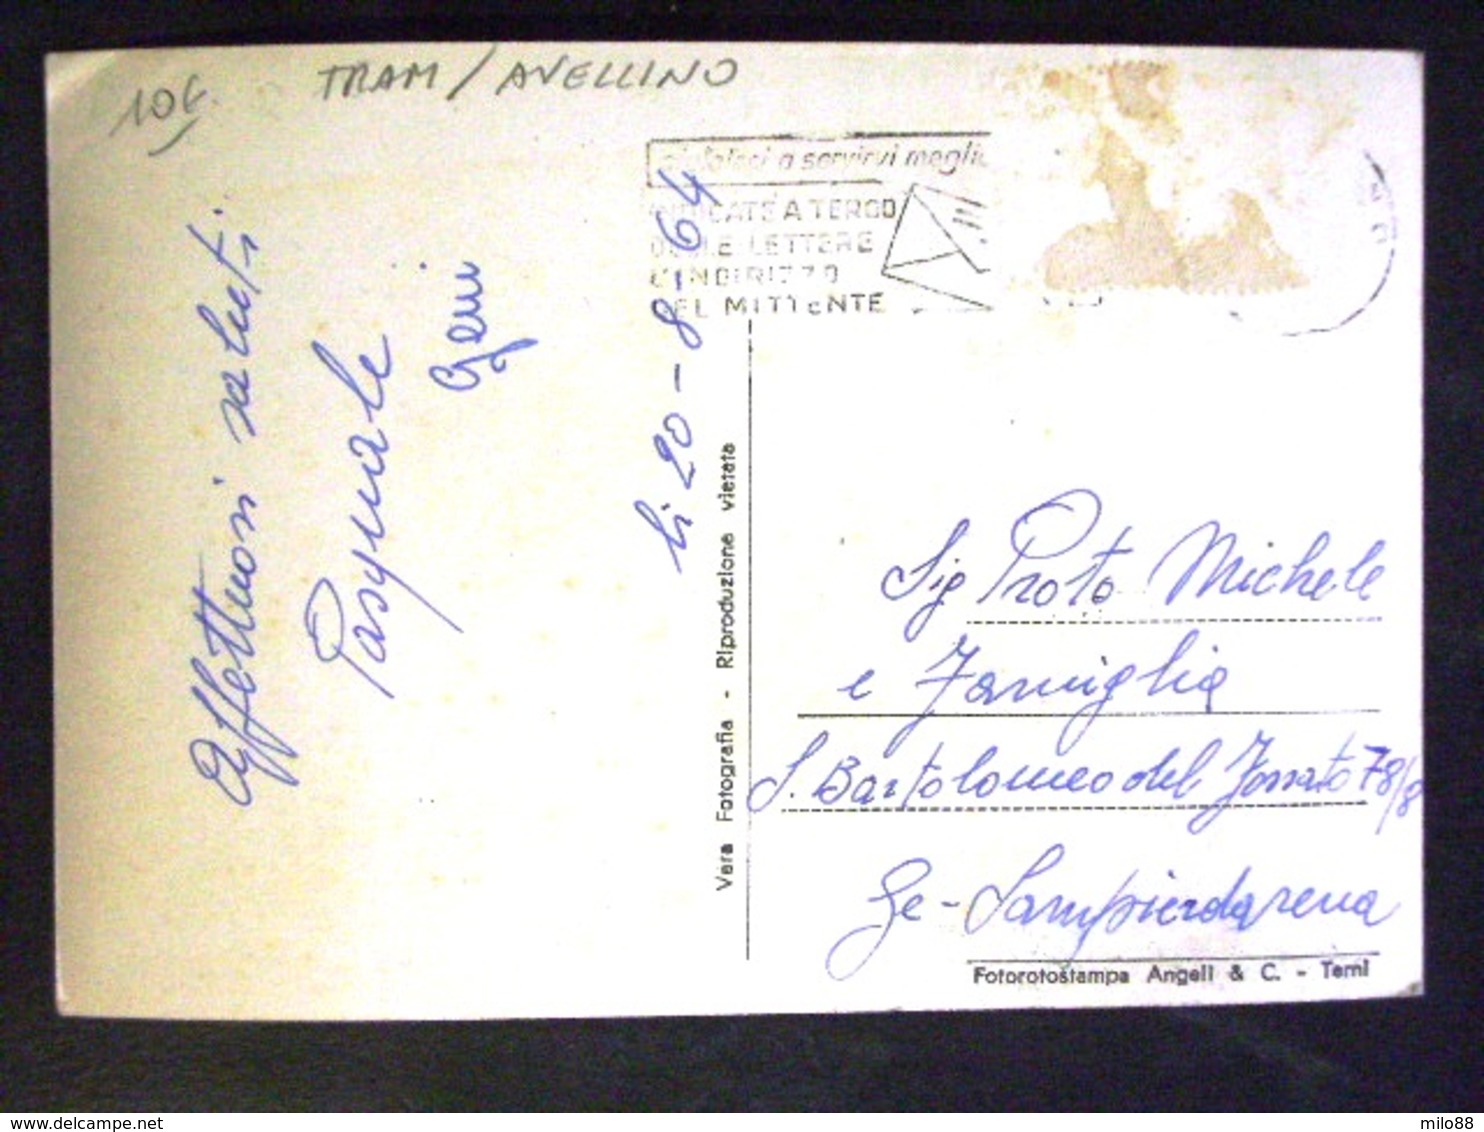 10€
TRAM / AVELLINO
a servirvi meglio
INDICATE A TERGO
DELLE LETTERE
L'INDIRIZZO
DEL MITTENTE
Affettuosi saluti
Pasquale
li 20-8-64
Vera Fotografia - Riproduzione vietata
Sig Proto Michele
e Famiglia
S. Bartolomeo del Fossato 78/8
Ge-Sampierdarena
Fotorotostampa Angeli & C. - Terni
milo88